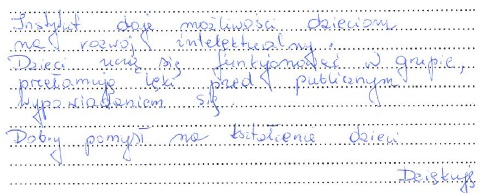 Instytut daje możliwości dzieciom
na rozwój intelektualny.
Dzieci uczą się funkcjonować w grupie,
przełamują lęki przed publicznym
wypowiadaniem się.
Dobry pomysł na kształcenie dzieci
Dziękuję